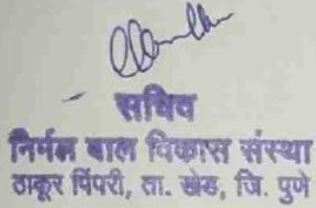 सचिव
निर्मल बाल विकास संस्था
ठाकूर पिंपरी, ता. खेड, जि. पुणे